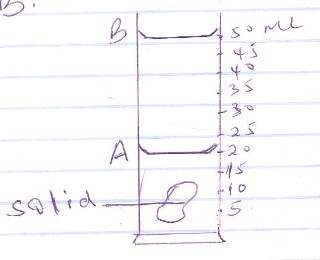 B.
B
50 ML
45
40
35
30
25
A
20
15
10
solid
5